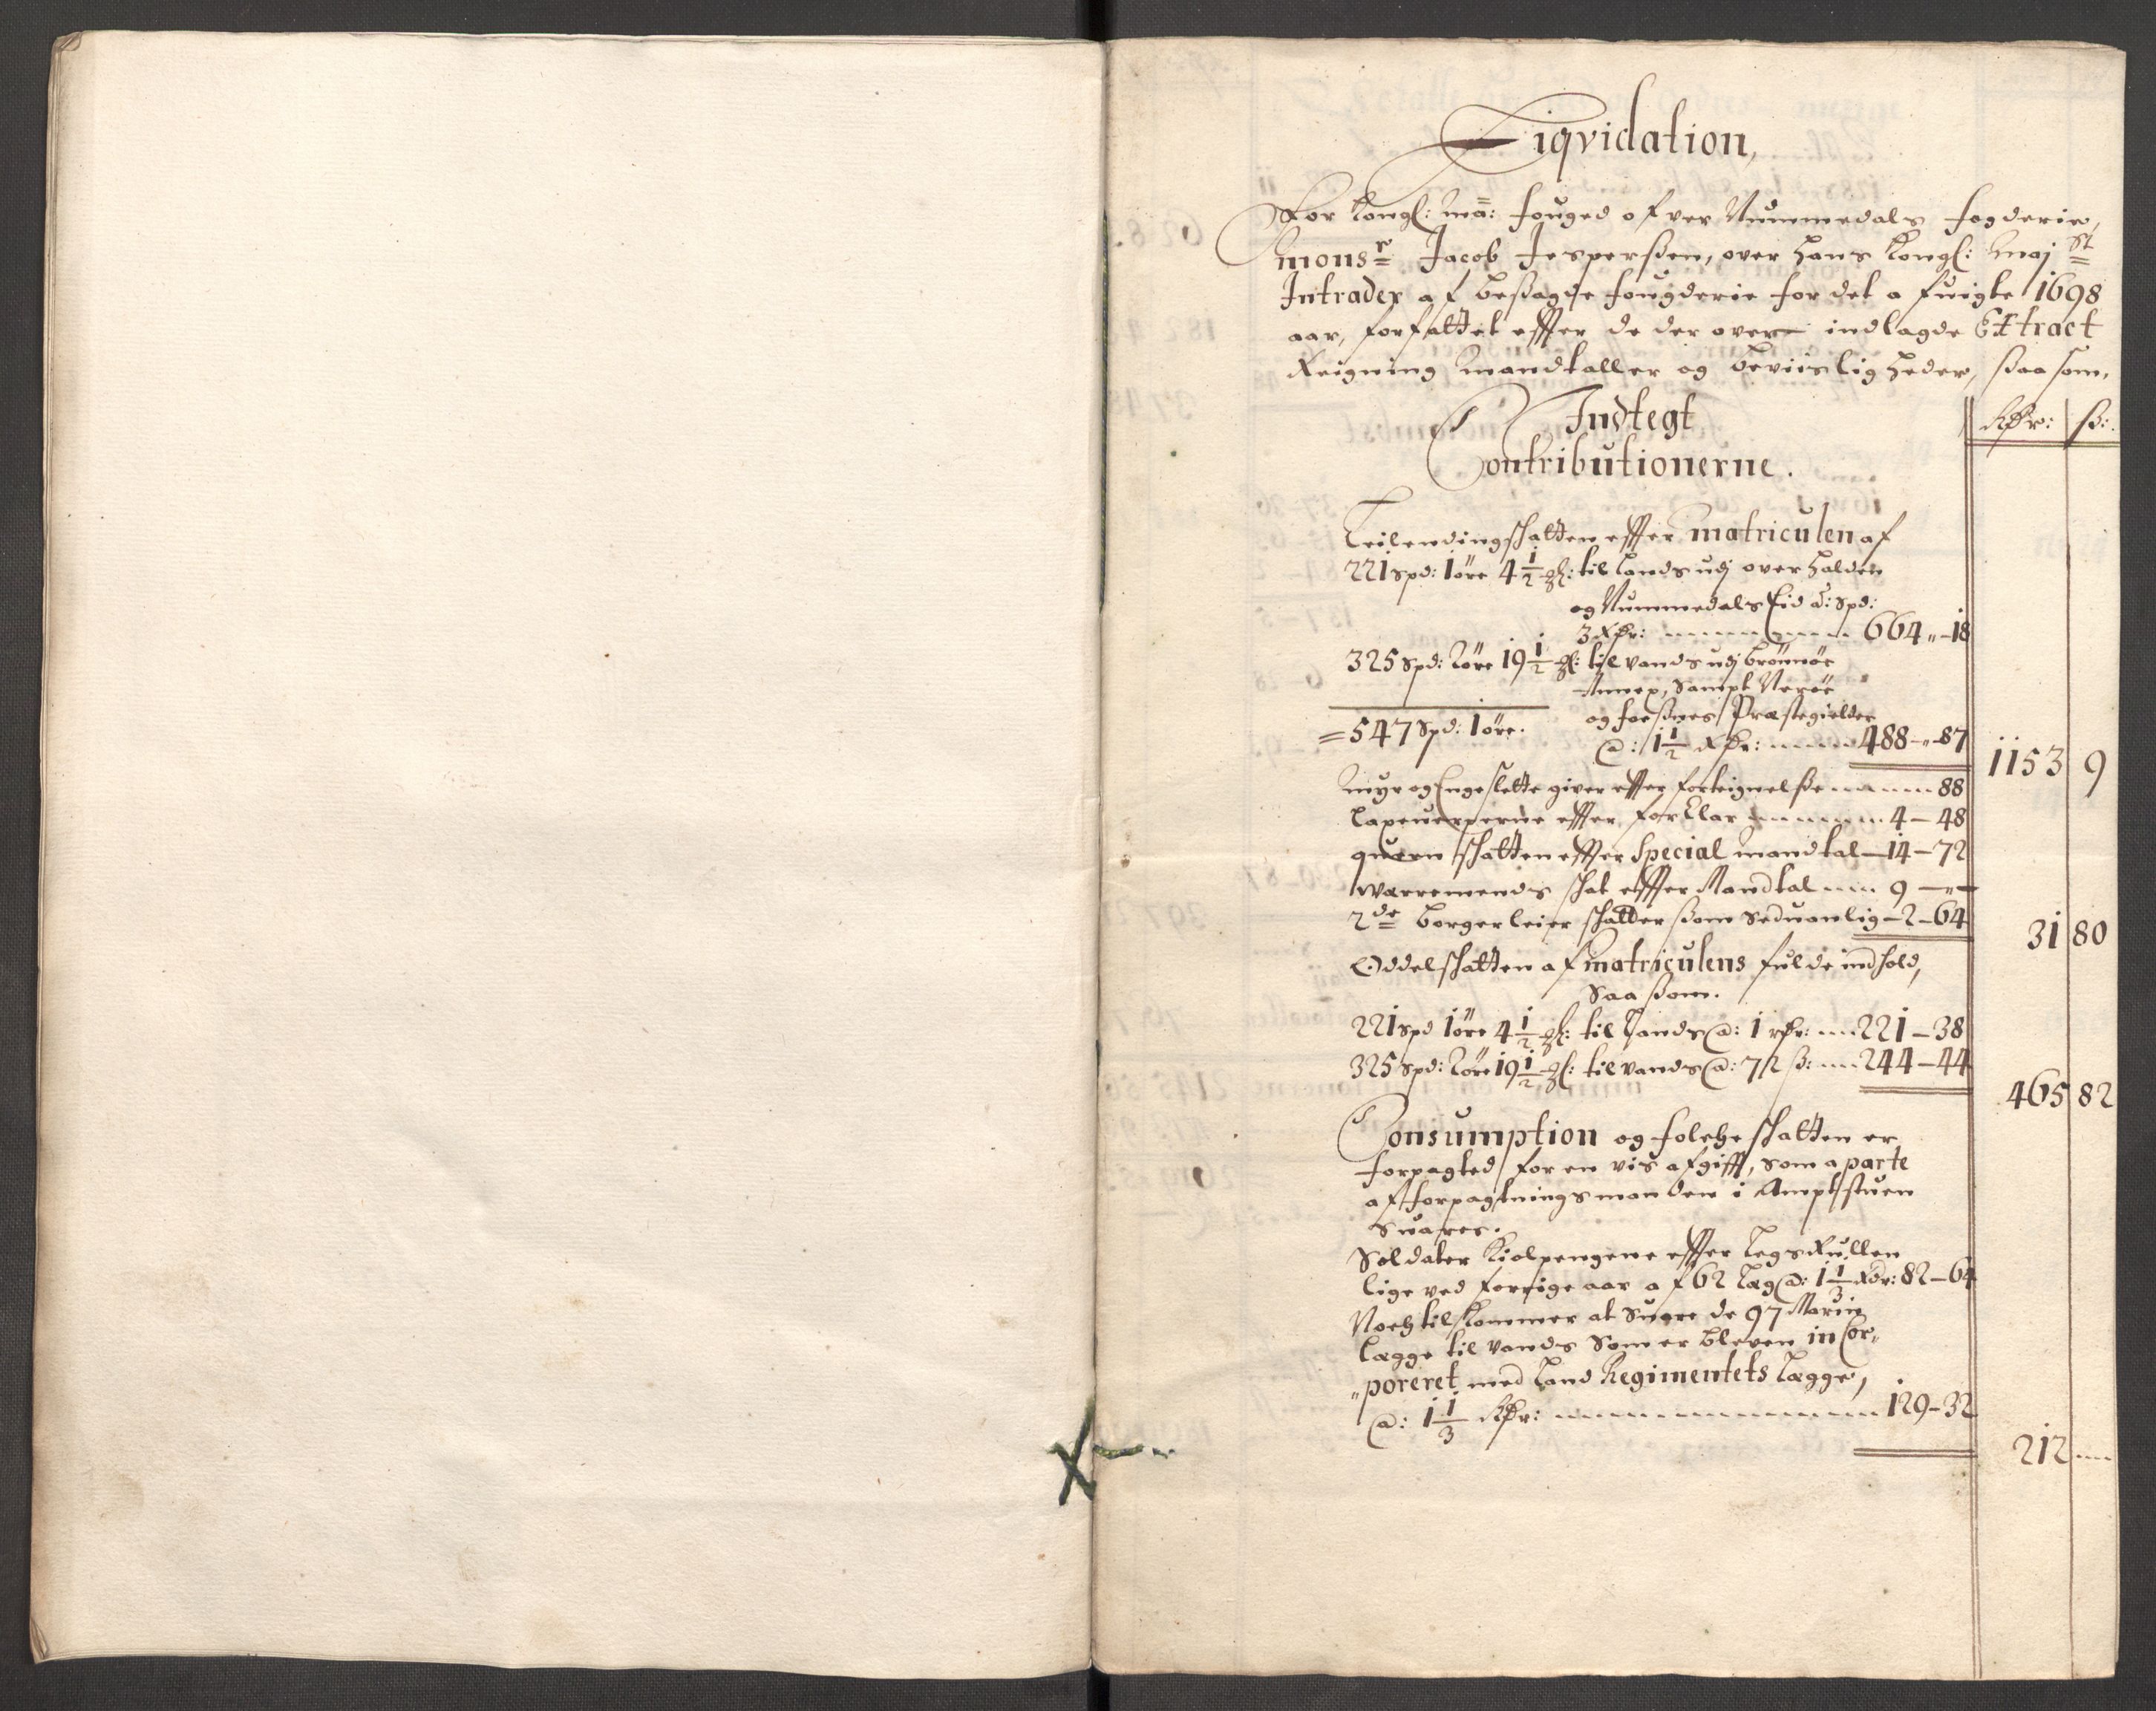 Liqvidation,
For Kongl: Ma: fouged ofver Nummedals fogderie,
Monsr Jacob Jesperssen, over hans Kongl: Maj st
Intrader af bessagde fougderie for det afvigte 1698
aar, forfattet effter de der over indlagde Extract
Reigning Mandtaller og beviisligheder, ssaa som,
Indtegt
Rdr: ß:
Contributionerne.
Leilendingschatten effter matriculen af
221 spd: 1 øre 4 1/2 : til lands udj overhalden
og Nummedals Eid a: spd:
3 Rdr: 664 " - 18
325 spd: 2 øre 19 1/2 : til vands udj Brønnøe
Annex, sampt Nerøe
og foessnes Præstegielder
= 547 spd: 1 øre.
@: 1 1/2 Rdr: 488 - " - 87
1153 9
Myr og Engesletter giver effter forteignelsse 88
Lapeverperne effter forklar 4 - 48
quern schatten effter Special mandtal - 14 - 72
warremends schat effter Mandtal 9 - " -
2de borgerleier schatter ssom seduanlig - 2 - 64
31 80
Oddelschatten af matriculens fulde indhold,
saa ssom.
221 spd 1 øre 4 1/2 : til Lands @: 1 rdr: 221 - 38
325 spd: 2 øre 19 1/2 : til vands @: 72 ß: 244 - 44
465 82
Consumption og folche schatten er
forpagted for en vis afgifft, som aparte
af forpagtningsmanden i Amptstuen
suares.
Soldater Kiolpengene effter Legs Rullen
lige ved forrige aar af 62 Læg @: 1 1/3 Rdr: 82 - 64
Noch tilkommer at suare de 97 Marin
Lægge til vands som er bleven in Cor,,
,,poreret med Land Regimentets Lægge,
@: 1 1/3 Rdr: 129 - 32
212